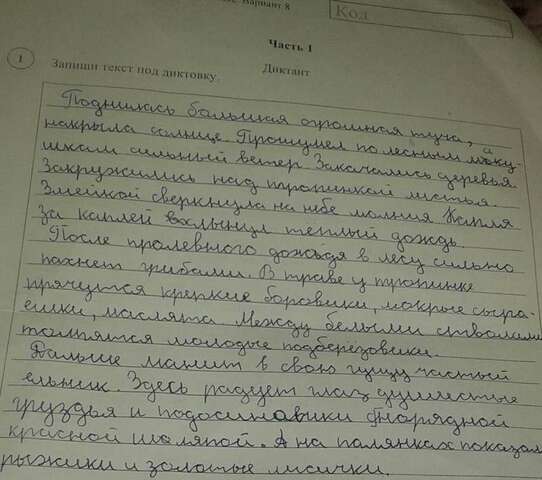 Вариант 8
Код
Часть 1
1
Запиши текст под диктовку. Диктант
Поднилась большая огромная туча, и
накрыла солнце. Прошумел по лесным маку-
шкам сильний ветер. Закачались деревья.
Закружились над тропинкой листья.
Змейкой сверкнула на небе молния. Капля
за каплей вхлынул теплый дождь.
После проливного дождя в лесу сильно
пахнет грибами. В траве у тропинке
прячутся крепкие боровики, мокрые сыра-
ешки, маслята. Между белыми стволами
толпятся молодые подберёзовики.
Дальше манит в свою гущу частый
ельник. Здесь радует глаз душистые
груздья и подосиновики с нарядной
красной шляпой. А на полянках показал
рыжики и золотые лисички.